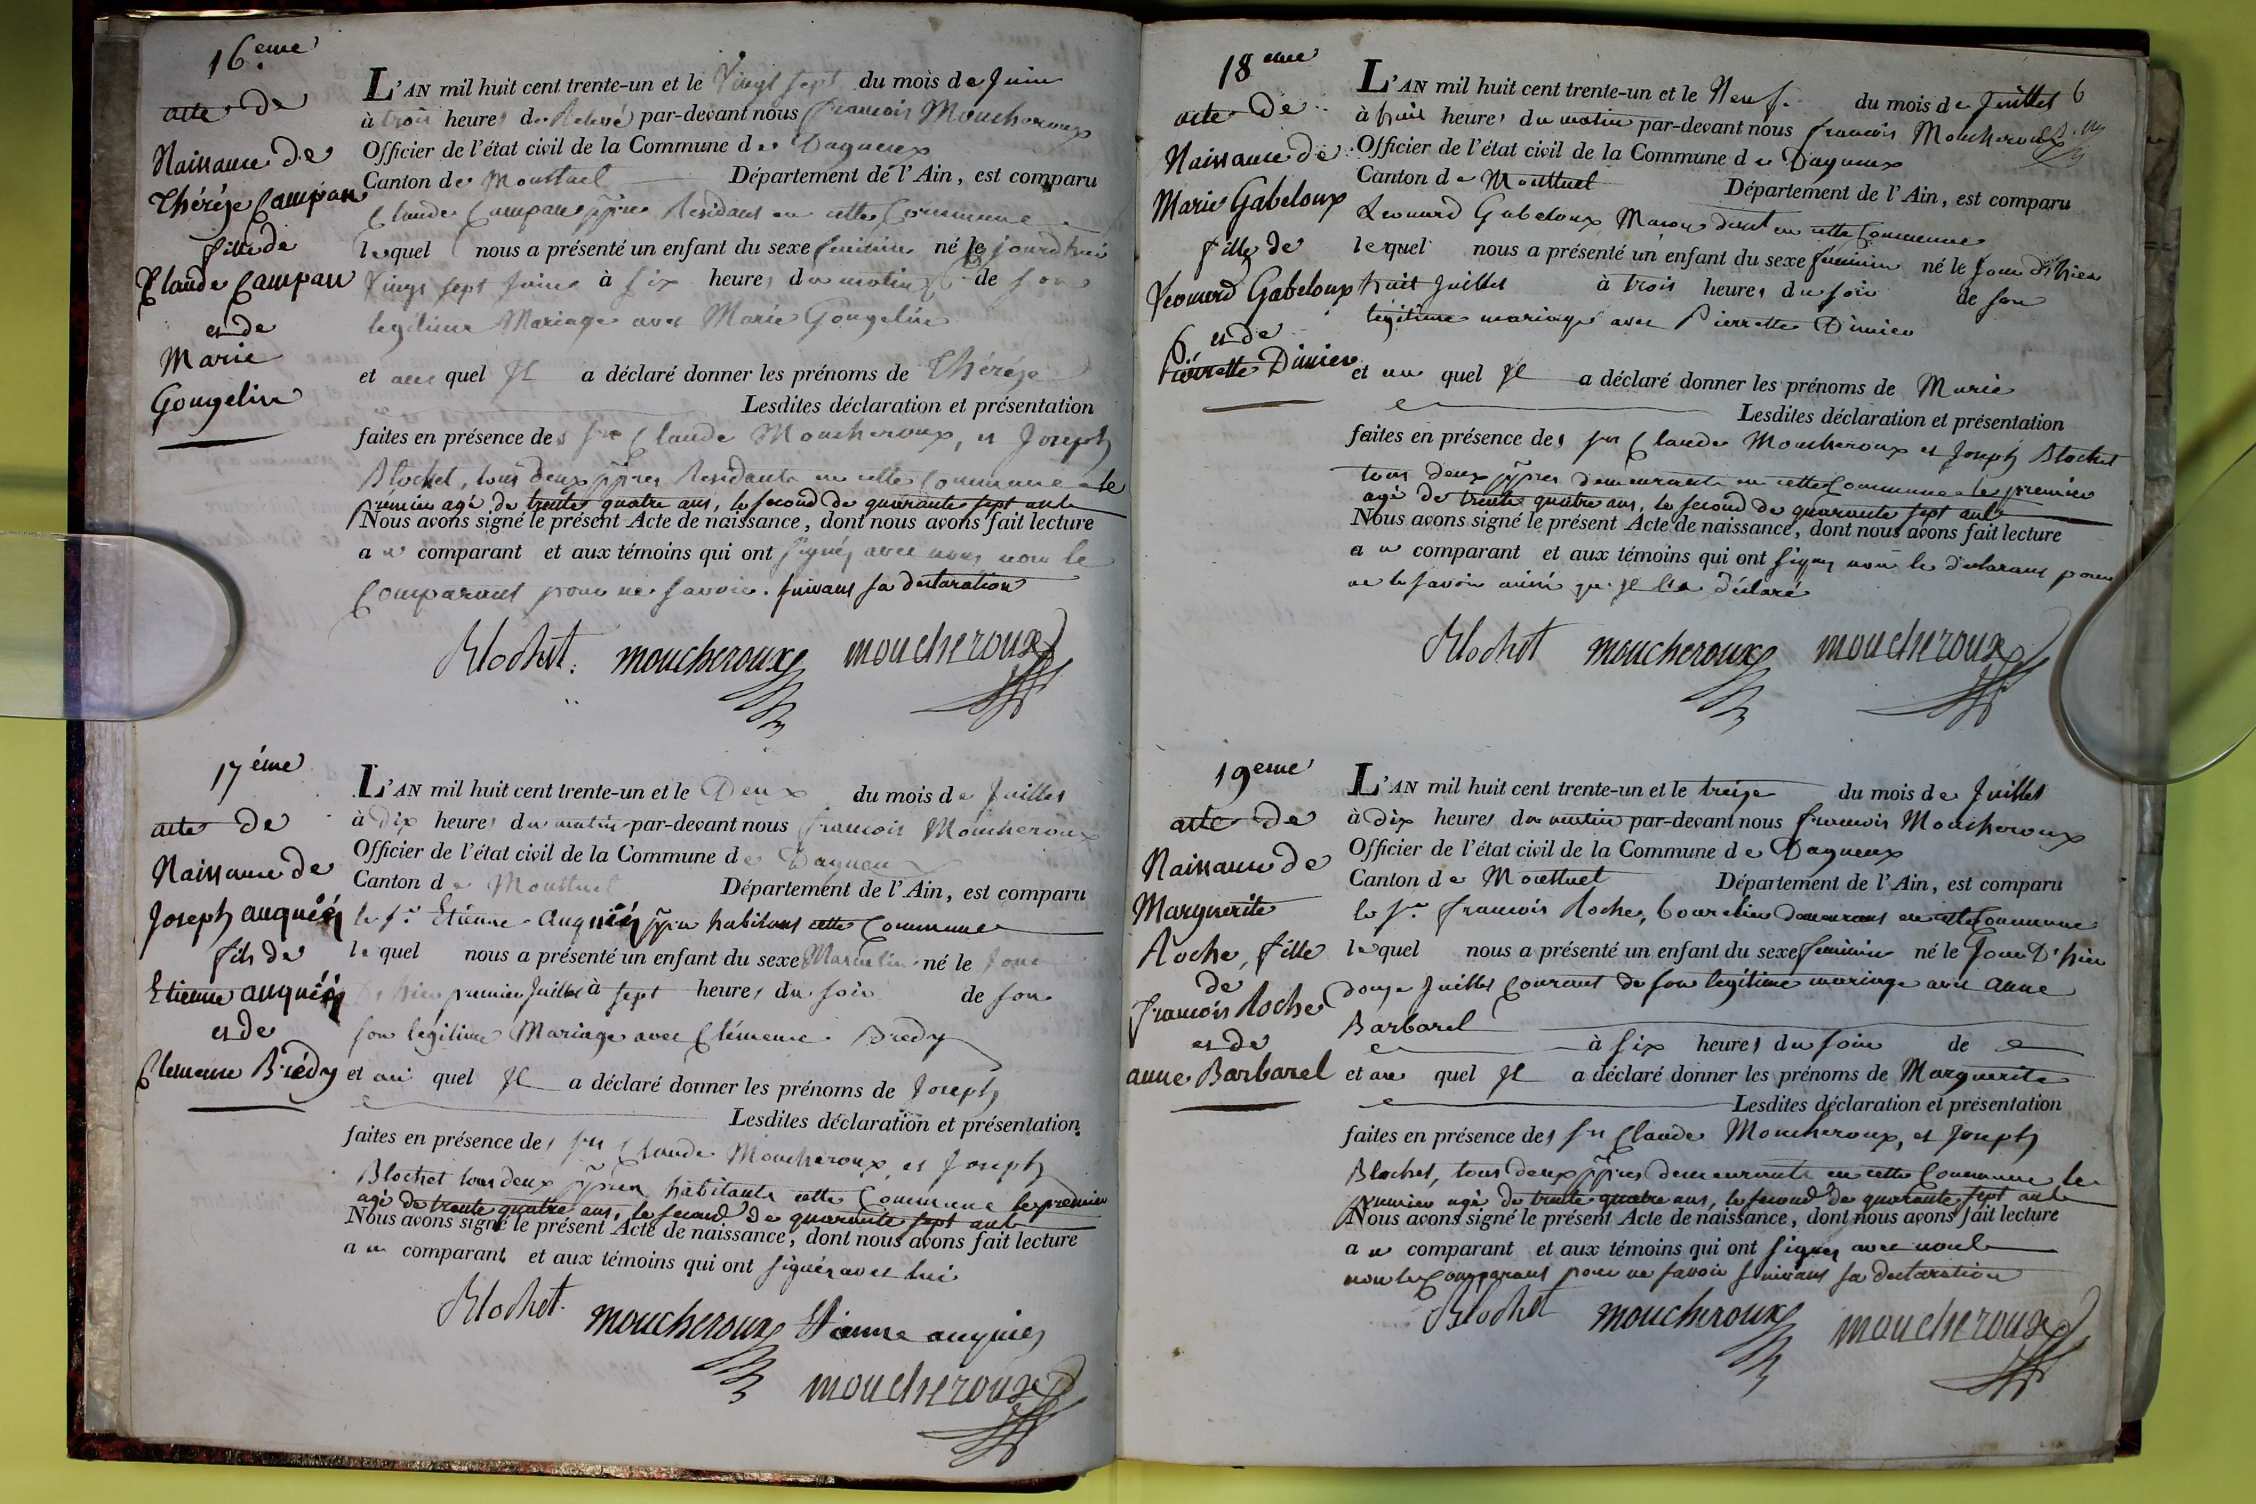 16.eme
acte de
Naissance de
Thérèze Campan
fille de
Claude Campan
et de
Marie
Gougelin
L'AN mil huit cent trente-un et le Vingt sept du mois de Juin
à trois heures de Relevé par-devant nous francois Moucheroux
Officier de l'état civil de la Commune de Dagneux
Canton de Montluel Département de l'Ain, est comparu
Claude Campan ppre Residant en cette Commune
lequel nous a présenté un enfant du sexe feminin né le jourd'hui
Vingt sept Juin à six heures du matin de son
legitime Mariage avec Marie Gougelin
et au quel Il a déclaré donner les prénoms de Thérèze
Lesdites déclaration et présentation
faites en présence des srs Claude Moucheroux, et Joseph
Blochet, tous deux ppres Residants en cette Commune le
premier agé de trente quatre ans, le second de quarante sept ans
Nous avons signé le présent Acte de naissance, dont nous avons fait lecture
au comparant et aux témoins qui ont signés avec nous non le
Comparant pour ne savoir. suivant sa declaration
Blochet. moucheroux moucheroux
17éme
acte de
Naissance de
Joseph auguiéz
fils de
Etienne auguiéz
et de
Clemence Briédy
L'AN mil huit cent trente-un et le Deux du mois de Juillet
à Dix heures du matin par-devant nous francois Moucheroux
Officier de l'état civil de la Commune de Dagneux
Canton de Montluel Département de l'Ain, est comparu
le sr Etienne Auguiéz ppre habitant cette Commune
lequel nous a présenté un enfant du sexe Masculin né le Jour
D'hier premier Juillet à sept heures du soir de son
son legitime Mariage avec Clémence Briedy
et au quel Il a déclaré donner les prénoms de Joseph
Lesdites déclaration et présentation
faites en présence des srs Claude Moucheroux et Joseph
Blochet tous deux ppres habitants cette Commune le premier
agé de trente quatre ans, le second de quarante sept ans
Nous avons signé le présent Acte de naissance, dont nous avons fait lecture
au comparant et aux témoins qui ont signés avec lui
Blochet. moucheroux Etienne auguiez
moucheroux
18eme
acte de
Naissance de
Marie Gabeloux
fille de
Leonard Gabeloux
et de
Pierrette Dimier
L'AN mil huit cent trente-un et le Neuf du mois de Juillet 6
à huit heures du matin par-devant nous francois Moucheroux
Officier de l'état civil de la Commune de Dagneux
Canton de Montluel Département de l'Ain, est comparu
Leonard Gabeloux Maçon demt en cette Commune
lequel nous a présenté un enfant du sexe feminin né le Jour d'hier
huit Juillet à trois heures du soir de son
légitime mariage avec Pierrette Dimier
et au quel Il a déclaré donner les prénoms de Marie
Lesdites déclaration et présentation
faites en présence des srs Claude Moucheroux et Joseph Blochet
tous deux ppres demeurants en cette Commune le premier
agé de trente quatre ans, le second de quarante sept ans
Nous avons signé le présent Acte de naissance, dont nous avons fait lecture
au comparant et aux témoins qui ont signés non le déclarant pour
ne le savoir ainsi qu'il l'a déclaré
Blochet moucheroux moucheroux
19eme
acte de
Naissance de
Marguerite
Roche, fille
de
francois Roche
et de
anne Barbarel
L'AN mil huit cent trente-un et le treize du mois de Juillet
à Dix heures du matin par-devant nous francois Moucheroux
Officier de l'état civil de la Commune de Dagneux
Canton de Montluel Département de l'Ain, est comparu
le sr francois Roche, bourelier demeurant en cette Commune
lequel nous a présenté un enfant du sexe feminin né le Jour D'hier
douze Juillet Courant de son legitime mariage avec anne
Barbarel
à six heures du soir de
et au quel Il a déclaré donner les prénoms de Marguerite
Lesdites déclaration et présentation
faites en présence des srs Claude Moucheroux, et Joseph
Blochet, tous deux ppres demeurants en cette Commune le
premier agé de trente quatre ans, le second de quarante sept ans
Nous avons signé le présent Acte de naissance, dont nous avons fait lecture
au comparant et aux témoins qui ont signés avec nous
non le Comparant pour ne savoir suivant sa declaration
Blochet moucheroux moucheroux